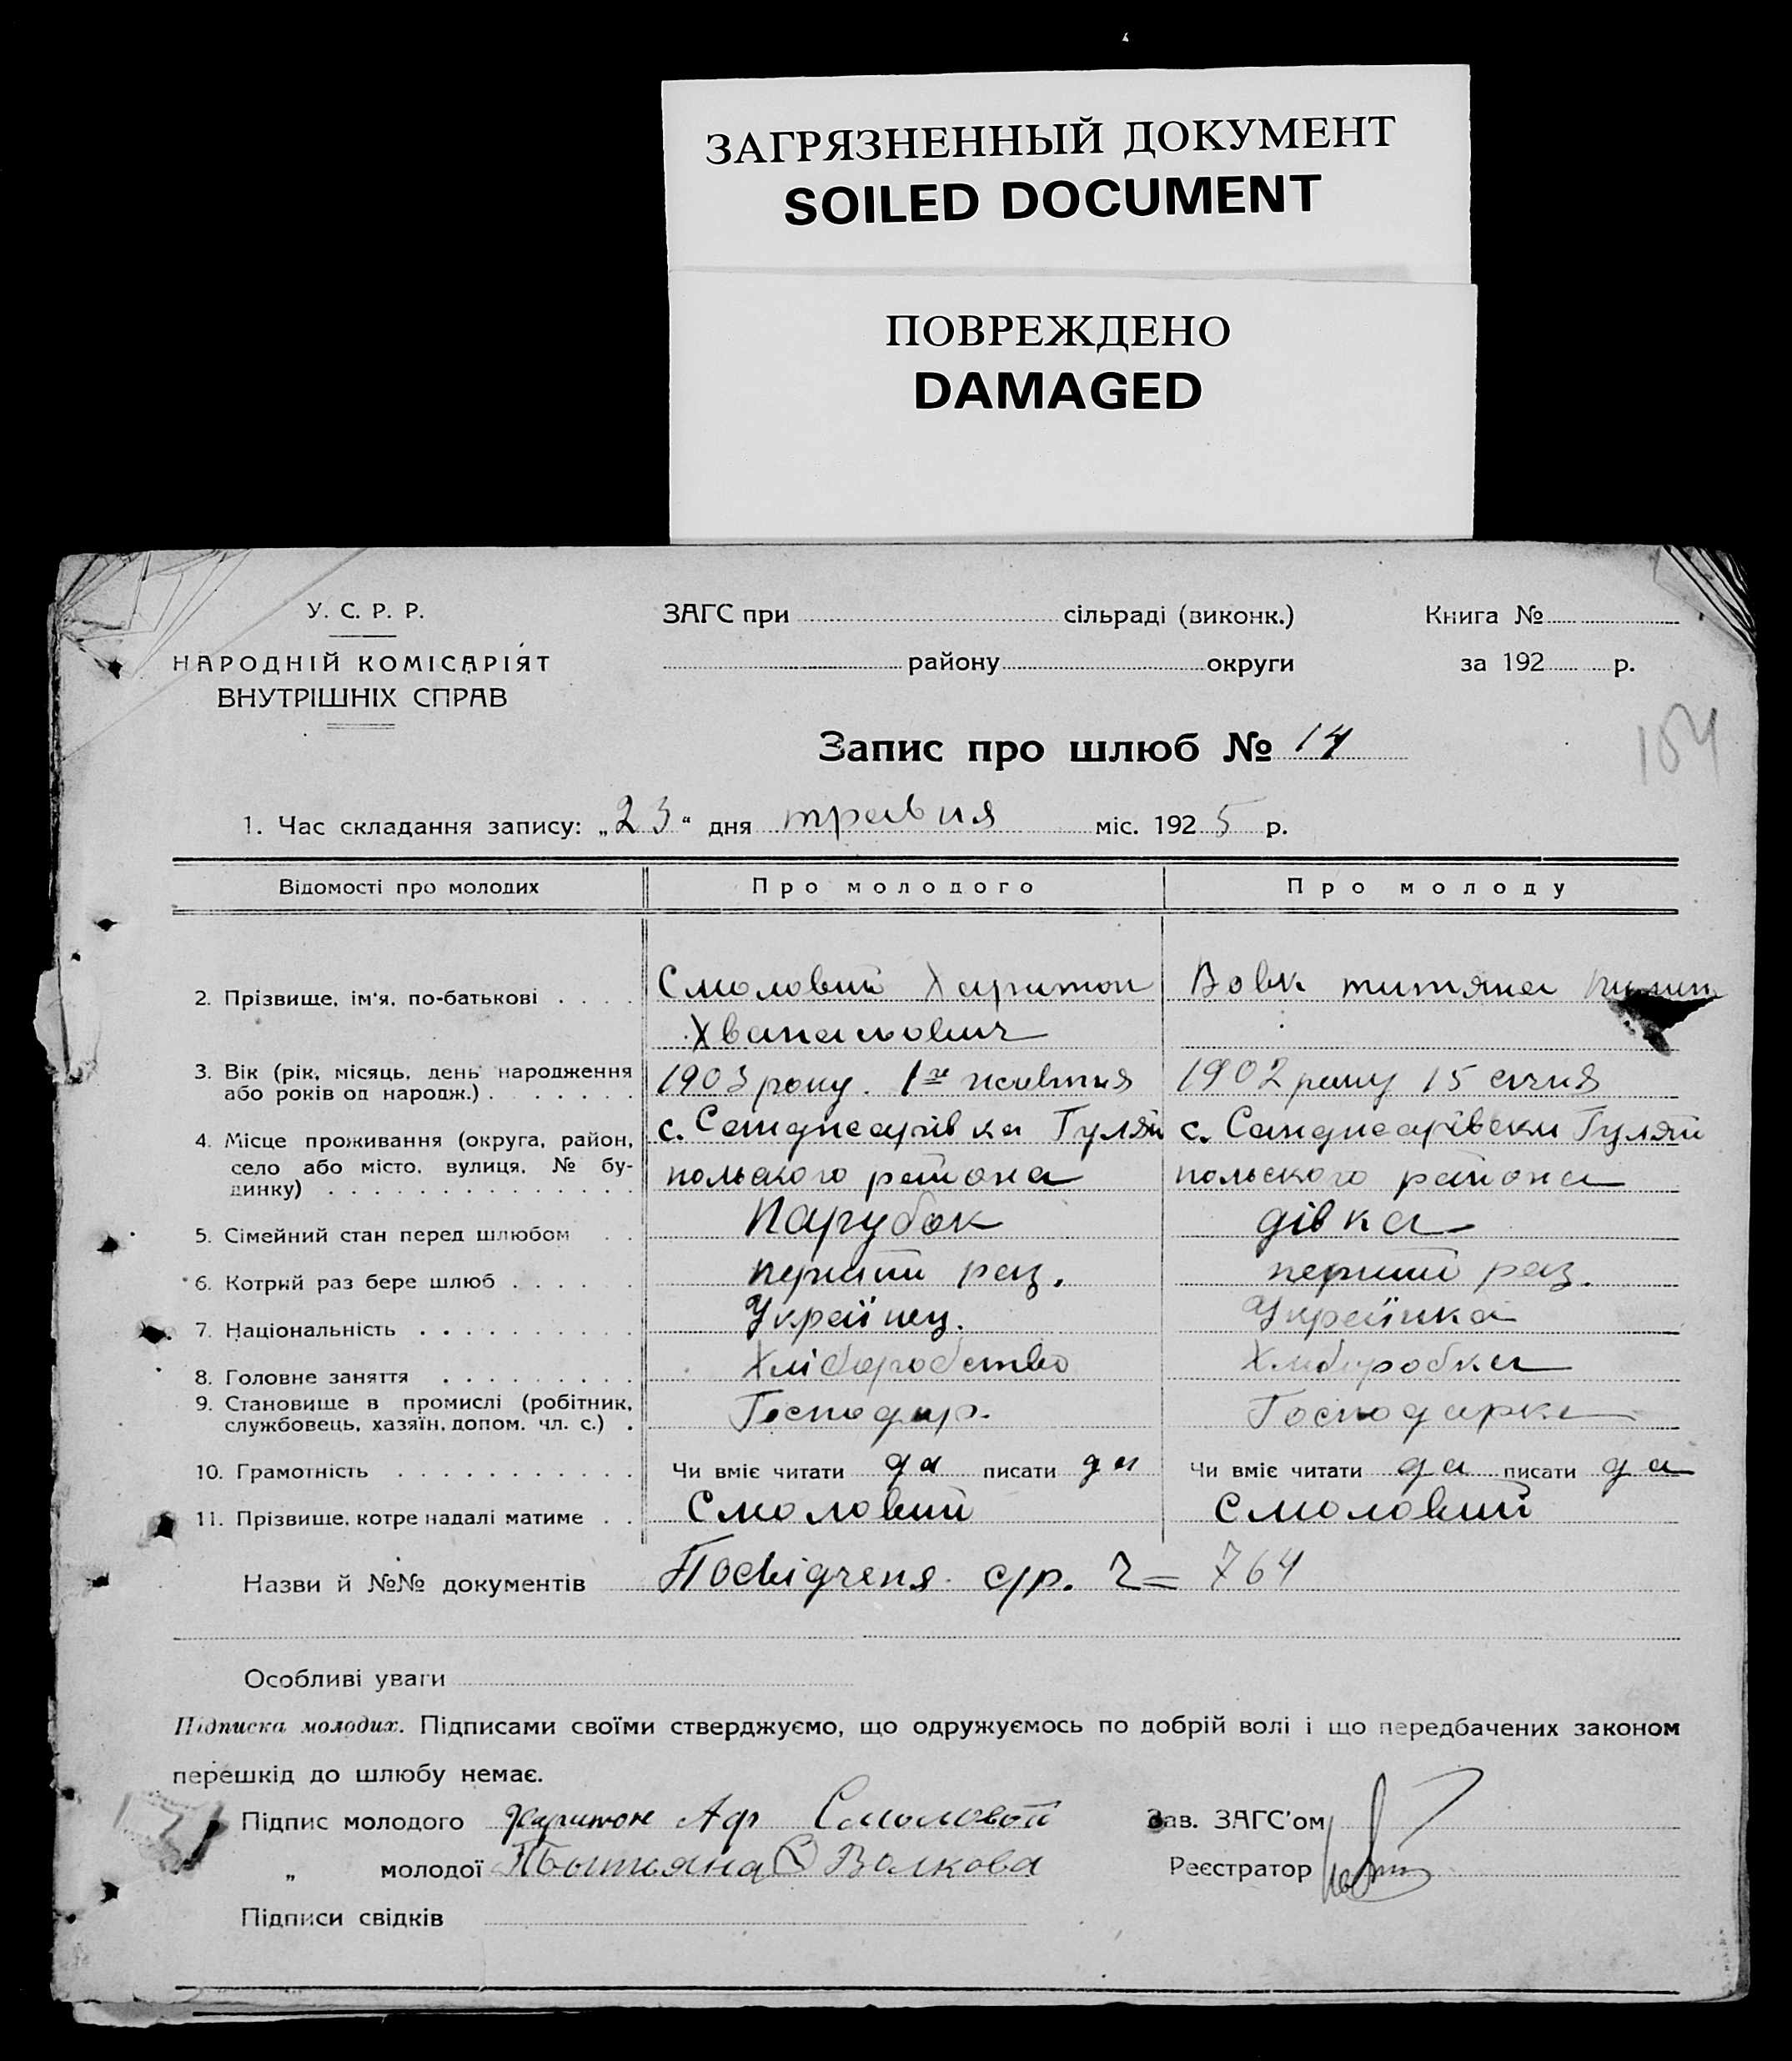 ЗАГРЯЗНЕННЫЙ ДОКУМЕНТ
SOILED DOCUMENT
ПОВРЕЖДЕНО
DAMAGED
У. С. Р. Р.
НАРОДНІЙ КОМІСАРІЯТ
ВНУТРІШНІХ СПРАВ
ЗАГС при сільраді (виконк.)
району округи
Книга №
за 192 р.
Запис про шлюб № 14
154
1. Час складання запису: „23“ дня травня міс. 1925 р.
Відомості про молодих Про молодого Про молоду
2. Прізвище, ім'я, по-батькові . . . . Смоловий Харитон Вовк титяна
Хванасьович
3. Вік (рік, місяць, день народження або років од народж.) . . . . . . . 1903 року. 1го жовтня 1902 року 15 січня
4. Місце проживання (округа, район, село або місто, вулиця, № будинку) . . . . с. Санджарівка Гуляй с. Санджарівски Гуляй
польского района польского района
5. Сімейний стан перед шлюбом . . Парубок дівка
6. Котрий раз бере шлюб . . . . . перший раз. перший раз.
7. Національність . . . . . . . . . Українец. Українка
8. Головне заняття . . . . . . . . . Хліборобство Хліборобка
9. Становище в промислі (робітник, службовець, хазяїн, допом. чл. с.) . Господар. Господарка
10. Грамотність . . . . . . . . . . . Чи вміє читати да писати да Чи вміє читати да писати да
11. Прізвище, котре надалі матиме . . Смоловий Смоловий
Назви й №№ документів Посвідченя с/р. 764
Особливі уваги
Підписка молодих. Підписами своїми стверджуємо, що одружуємось по добрій волі і що передбачених законом
перешкід до шлюбу немає.
Підпис молодого Харитон Аф Смоловой Зав. ЗАГС'ом
„ молодої Волкова Реєстратор
Підписи свідків